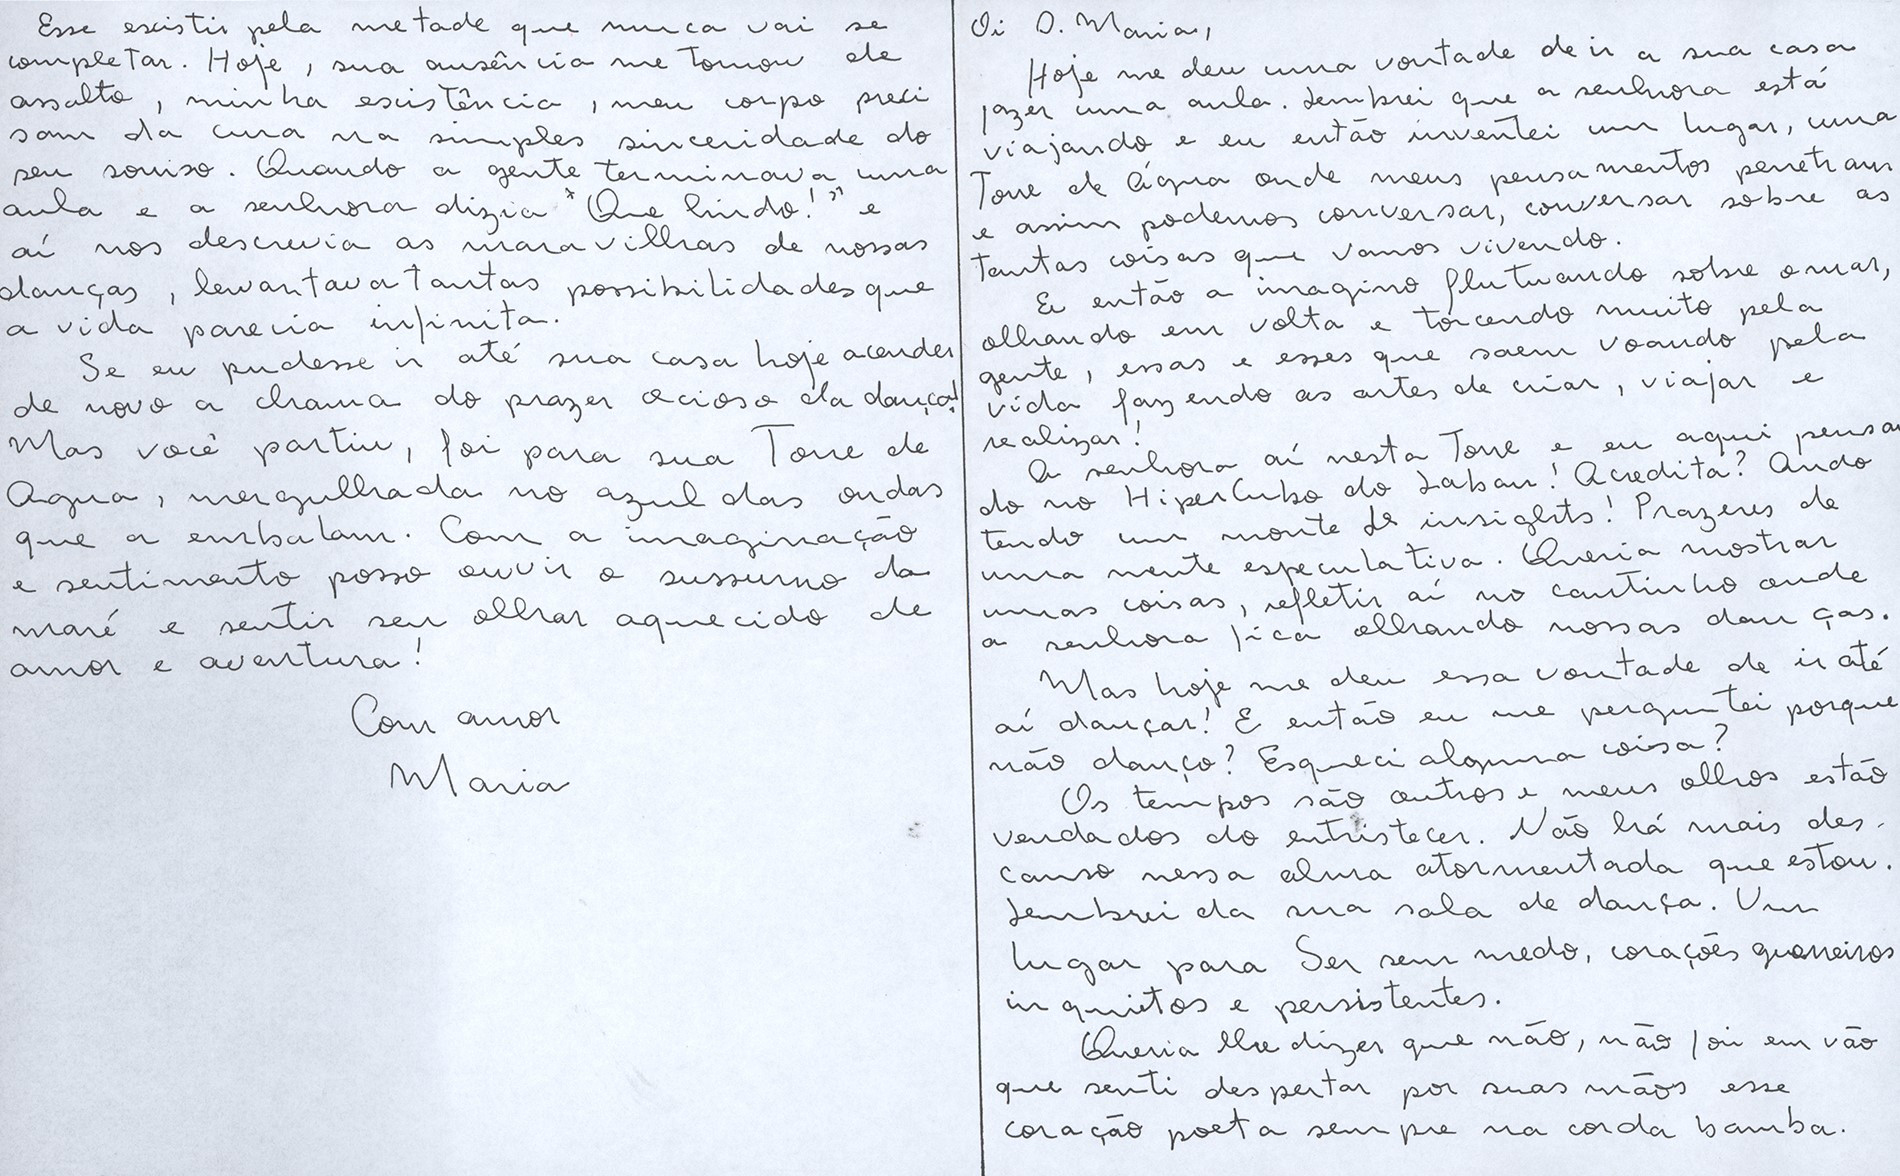 Oi D. Maria,
Hoje me deu uma vontade de ir a sua casa
fazer uma aula. Lembrei que a senhora está
viajando e eu então inventei um lugar, uma
Torre de Água onde meus pensamentos penetram
e assim podemos conversar, conversar sobre as
tantas coisas que vamos vivendo.
Eu então a imagino flutuando sobre o mar,
olhando em volta e torcendo muito pela
gente, essas e esses que saem voando pela
vida fazendo as artes de criar, viajar e
realizar!
A senhora aí nesta Torre e eu aqui pensan
do no HiperCubo do Laban! Acredita? Ando
tendo um monte de insights! Prazeres de
uma mente especulativa. Queria mostrar
umas coisas, refletir aí no cantinho onde
a senhora fica olhando nossas danças.
Mas hoje me deu essa vontade de ir até
aí dançar! E então eu me perguntei porque
não danço? Esqueci alguma coisa?
Os tempos são outros e meus olhos estão
vendados do entristecer. Não há mais des-
canso nessa alma atormentada que estou.
Lembrei da sua sala de dança. Um
lugar para Ser sem medo, corações guerreiros
inquietos e persistentes.
Queria lhe dizer que não, não foi em vão
que senti despertar por suas mãos esse
coração poeta sempre na corda bamba.
Esse existir pela metade que nunca vai se
completar. Hoje, sua ausência me tomou de
assalto, minha existência, meu corpo preci
sam da cura na simples sinceridade do
seu sorriso. Quando a gente terminava uma
aula e a senhora dizia "Que lindo!" e
aí nos descrevia as maravilhas de nossas
danças, levantava tantas possibilidades que
a vida parecia infinita.
Se eu pudesse ir até sua casa hoje acender
de novo a chama do prazer ocioso da dança!
Mas você partiu, foi para sua Torre de
Agua, mergulhada no azul das ondas
que a embalam. Com a imaginação
e sentimento posso ouvir o sussurro da
maré e sentir seu olhar aquecido de
amor e aventura!
Com amor
Maria